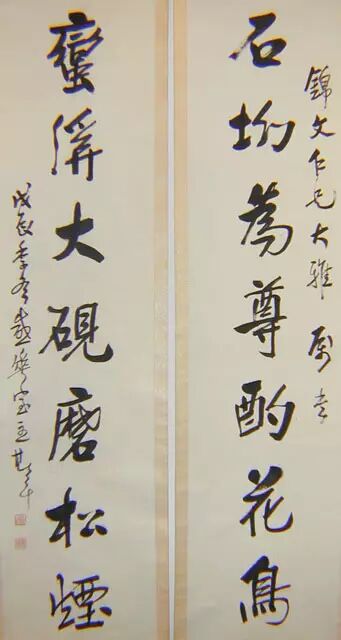 錦文仁兄大雅 屬書
石坳為尊酌花鳥
蠻溪大硯磨松煙
戊辰季冬